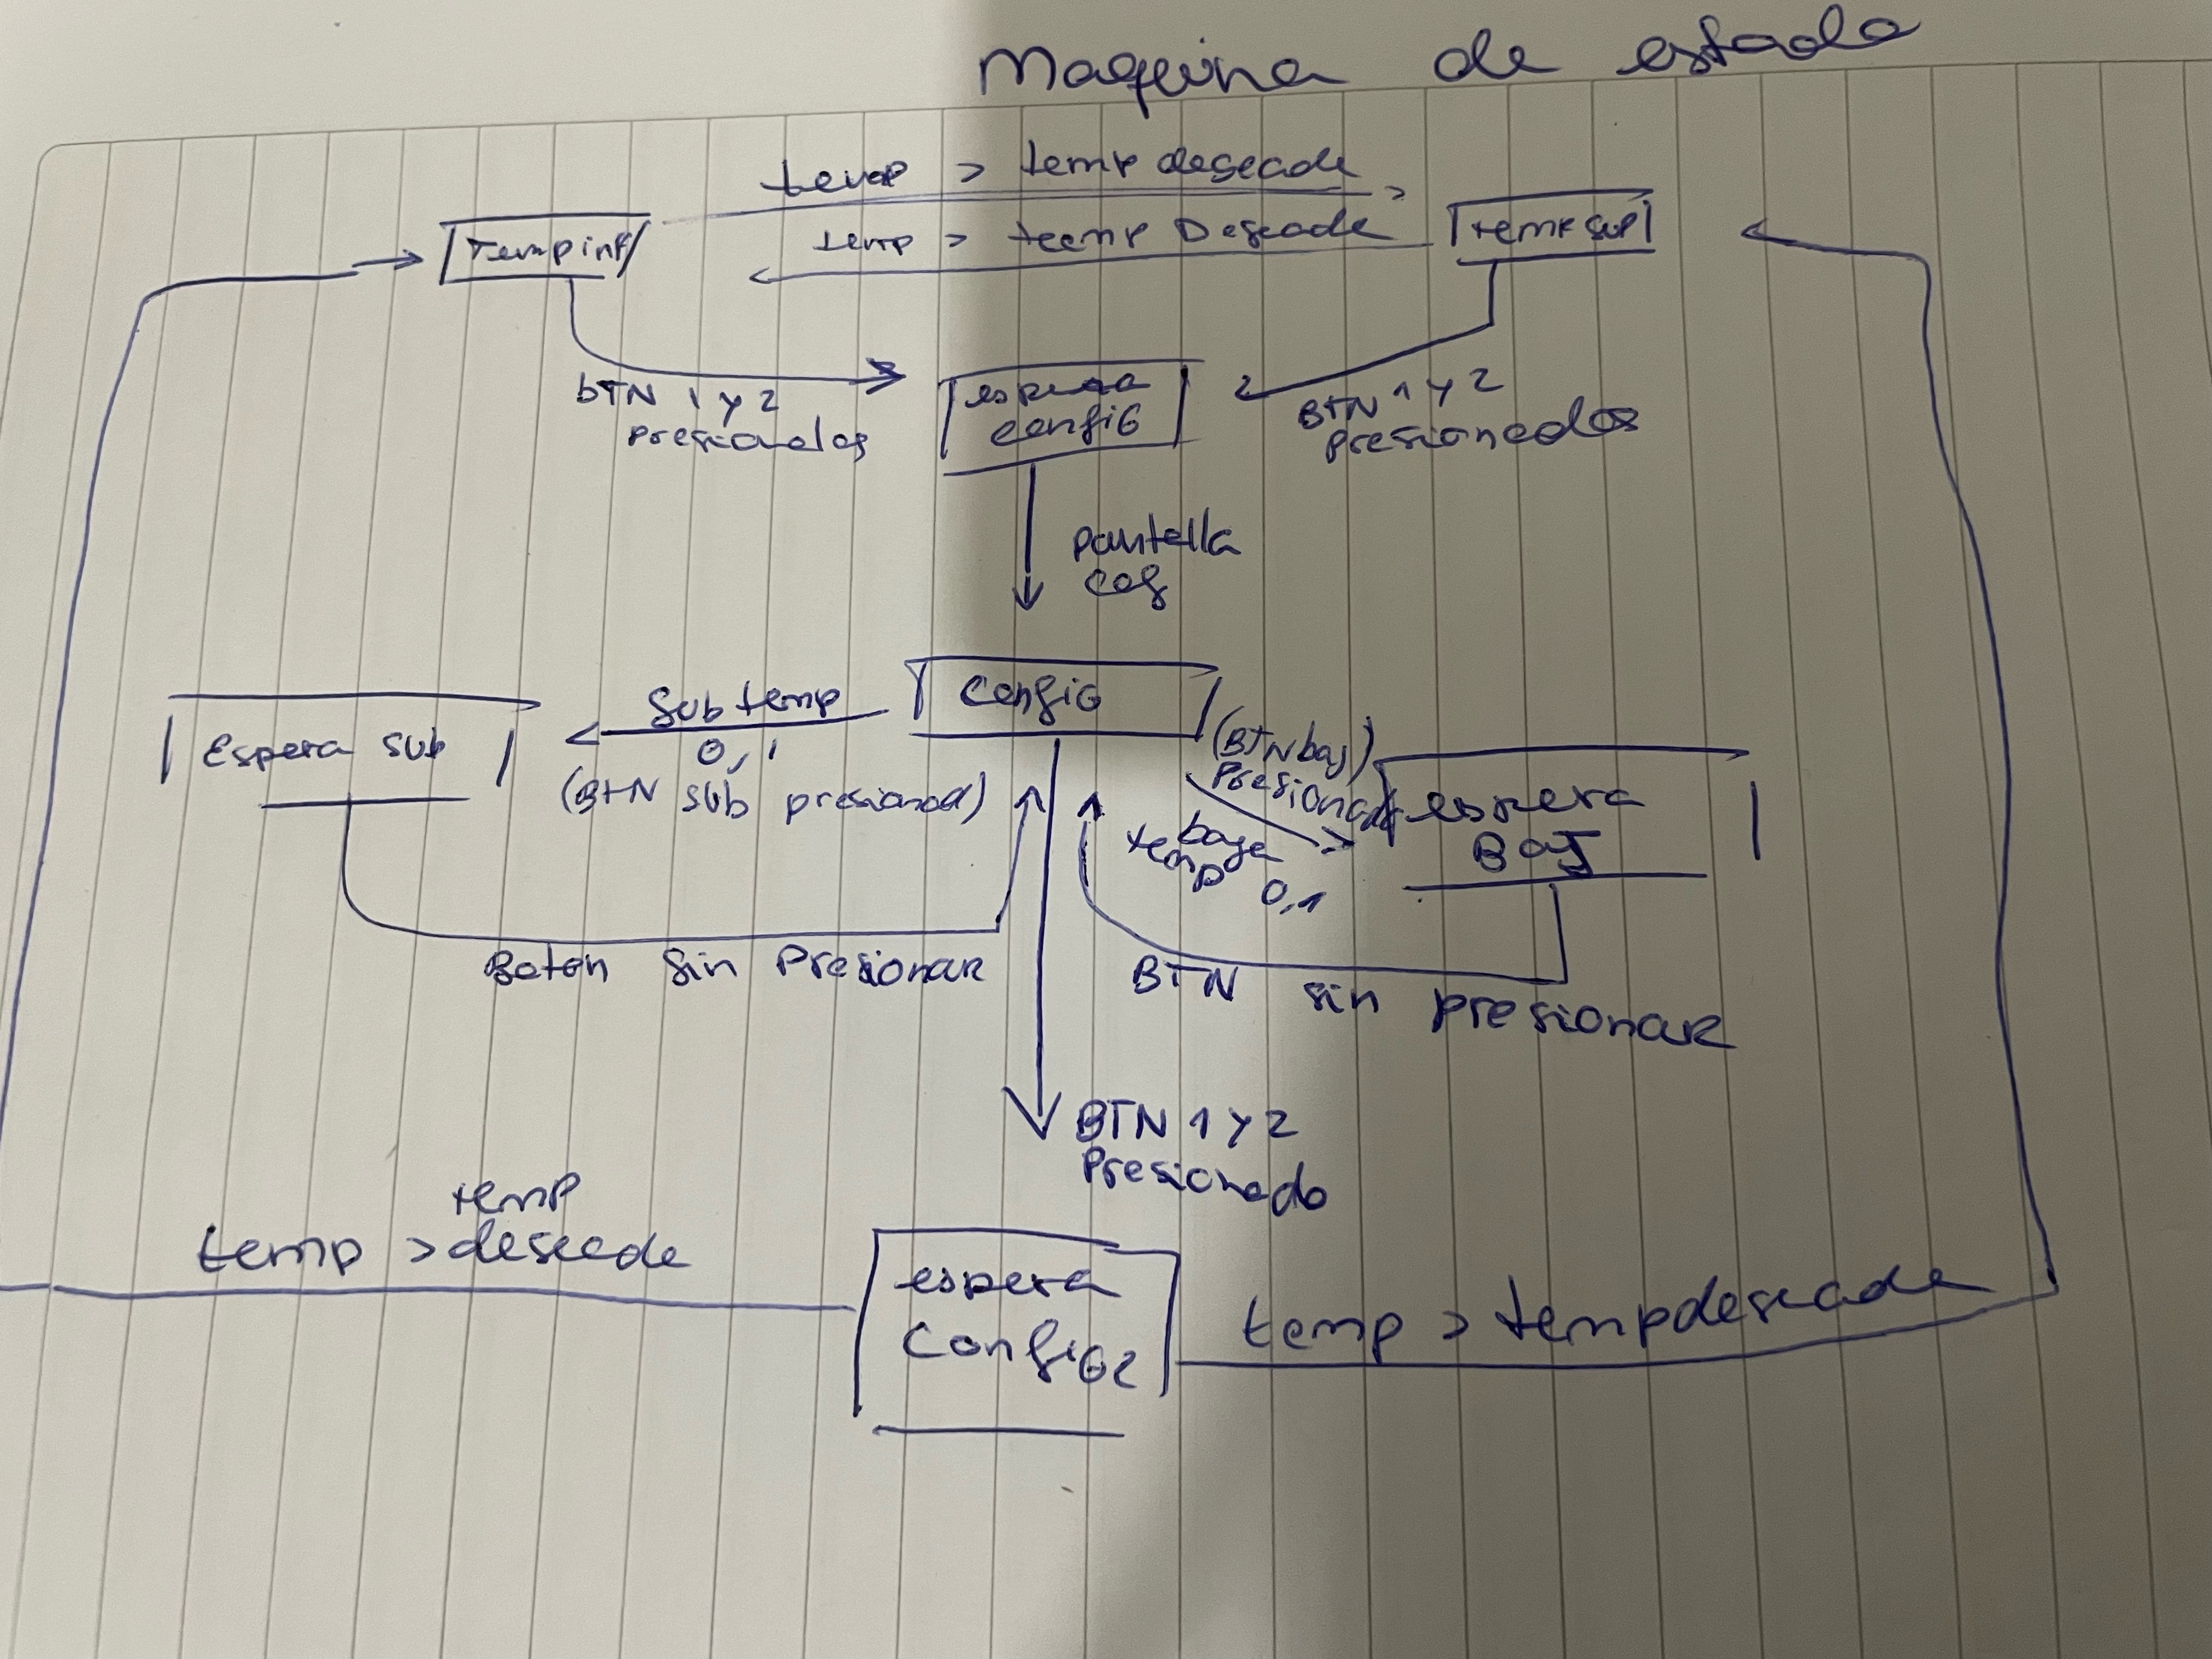 Maquina de estado
temp > temp deseade
Temp inf
temp > teemp Deseade
temp sup
bTN 1 y 2
Presionados
espera
config
BTN 1 y 2
presionados
pantella
Config
Sub temp
0,1
(BTN sub presionad)
Espera sub
(BTN baj)
Presionado
baja
temp
0,1
espera
BaJ
Boton sin Presionar
BTN sin presionar
BTN 1 y 2
Presionado
temp
temp > deseede
espera
Config2
temp > tempdeseada